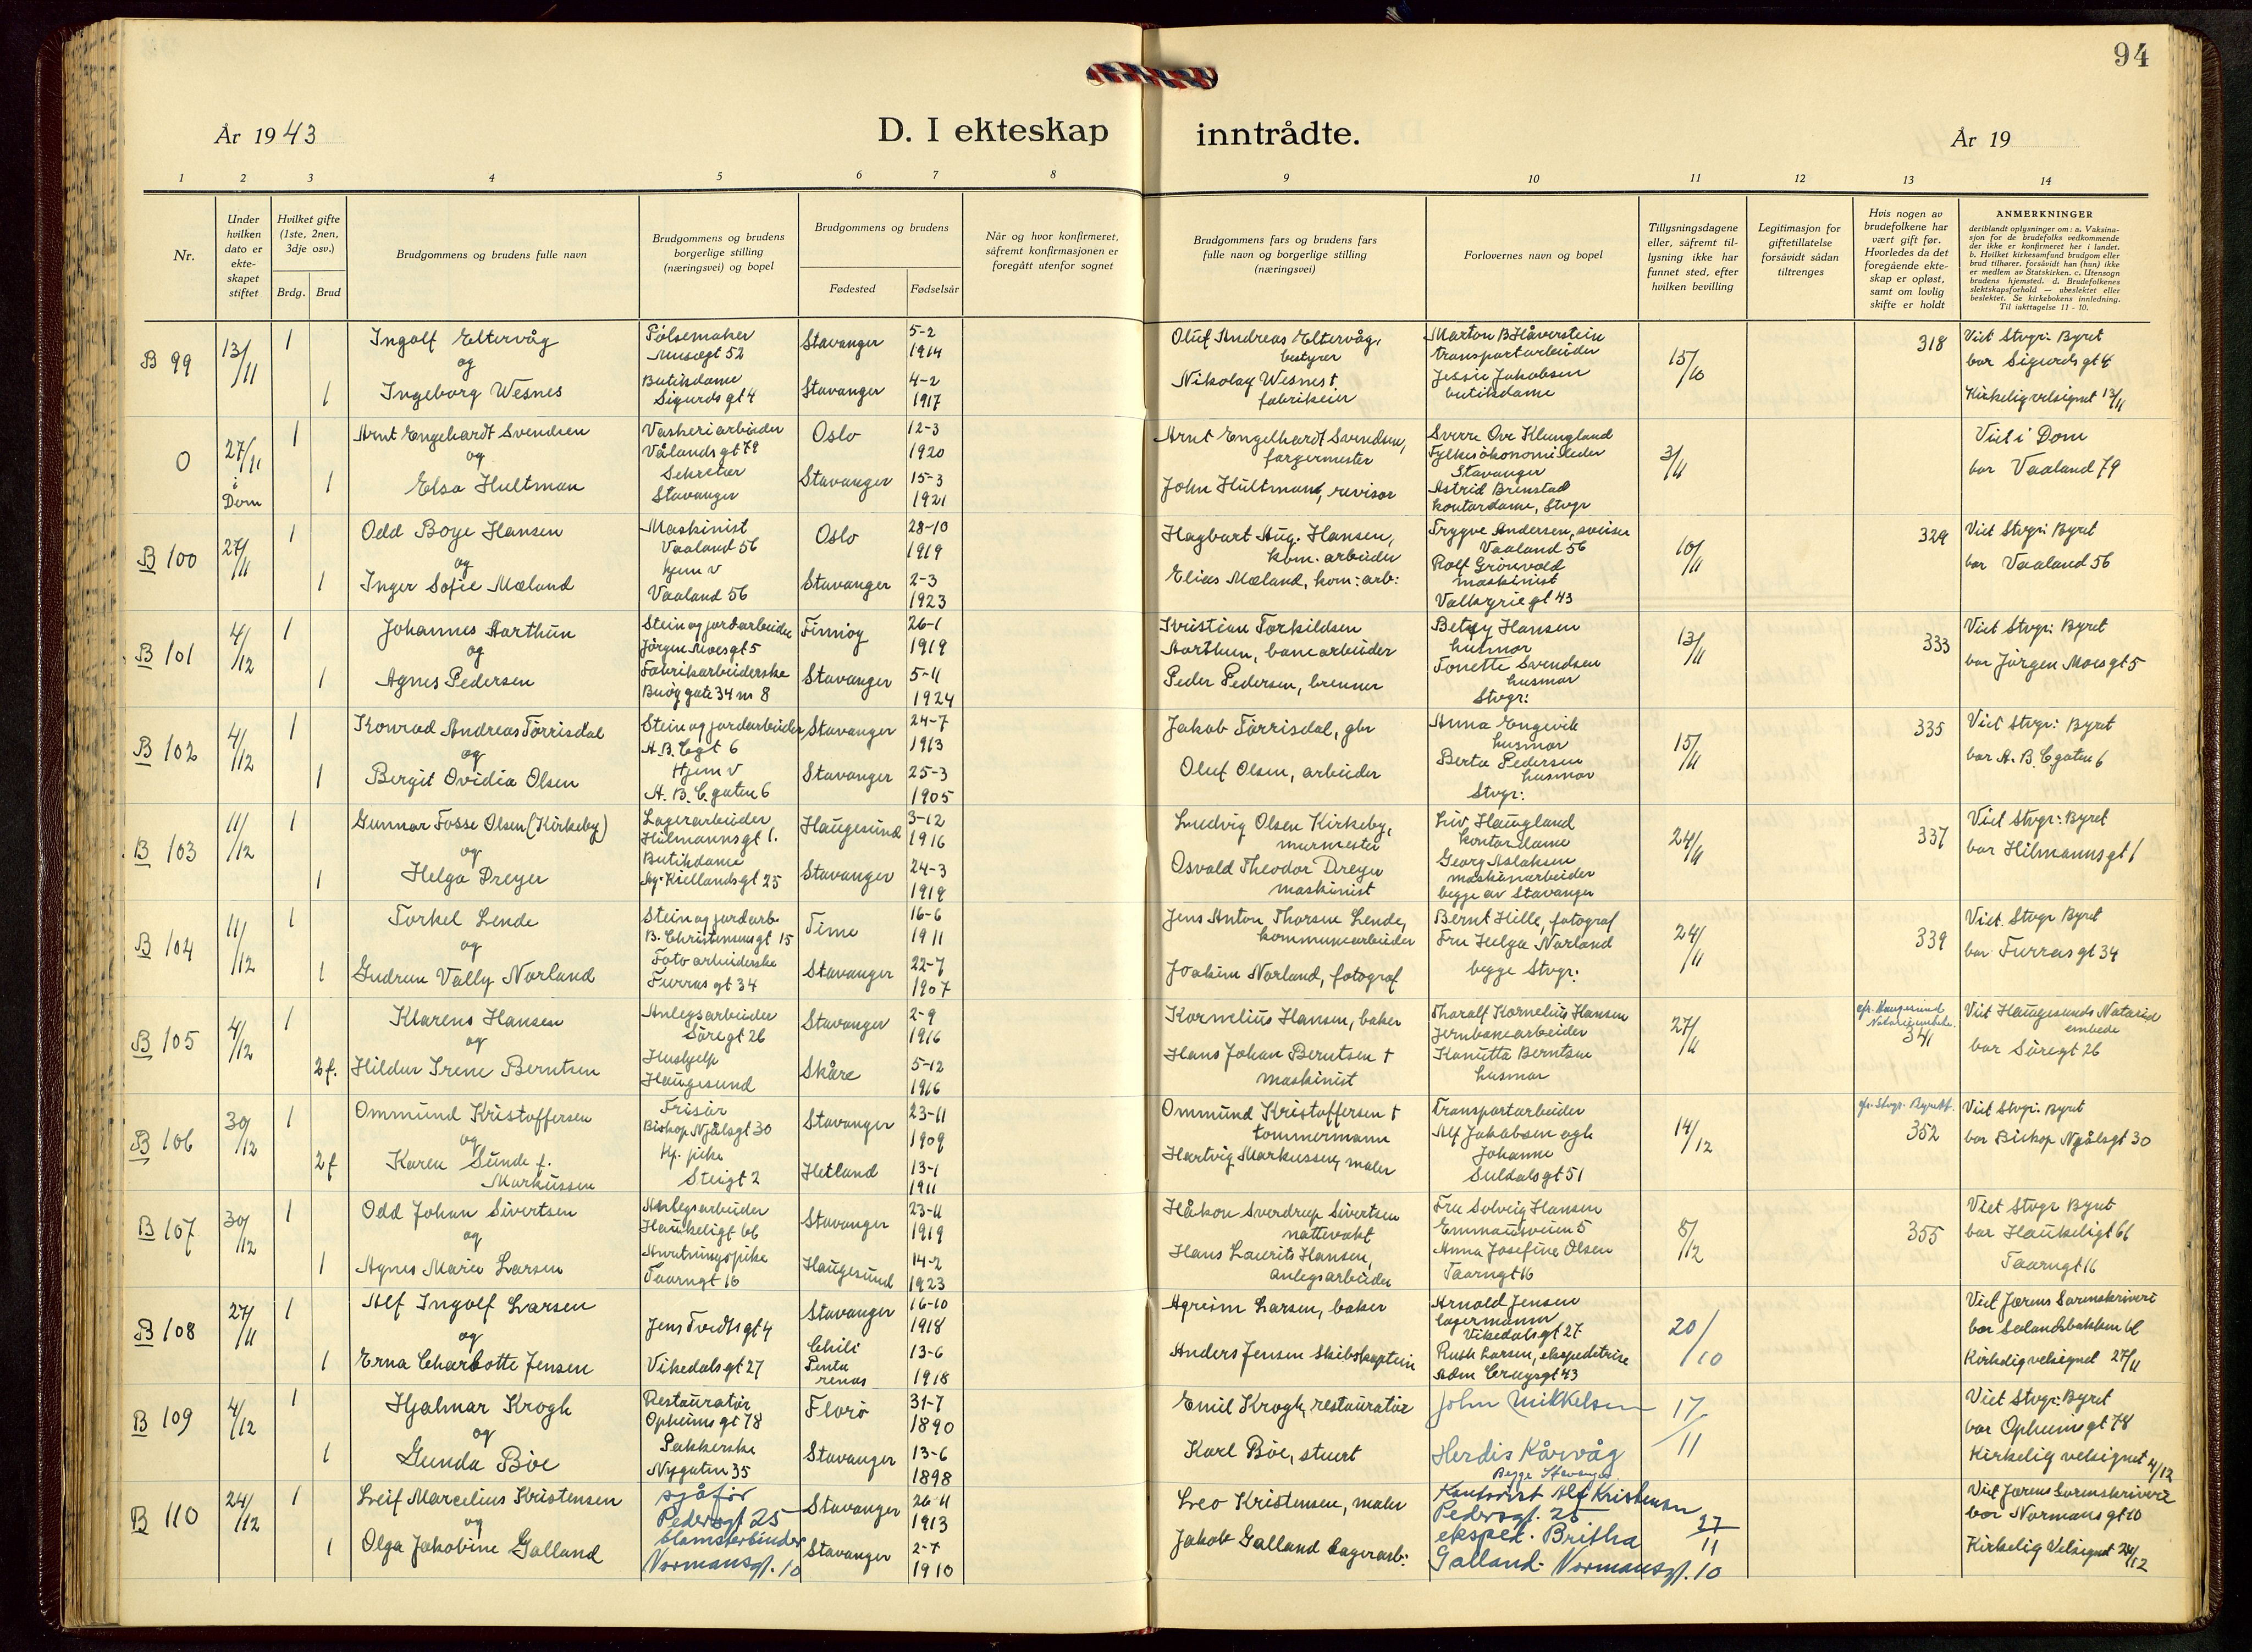 94
År 1943
D. I ekteskap inntrådte.
År 19
1 2 3 4 5 6 7 8 9 10 11 12 13 14
Nr.
Under hvilken dato er ekteskapet stiftet
Hvilket gifte (1ste, 2nen, 3dje osv.)
Brdg. Brud
Brudgommens og brudens fulle navn
Brudgommens og brudens borgerlige stilling (næringsvei) og bopel
Brudgommens og brudens
Fødested Fødselsår
Når og hvor konfirmeret, såfremt konfirmasjonen er foregått utenfor sognet
Brudgommens fars og brudens fars fulle navn og borgerlige stilling (næringsvei)
Forlovernes navn og bopel
Tillysningsdagene eller, såfremt tillysning ikke har funnet sted, efter hvilken bevilling
Legitimasjon for giftetillatelse forsåvidt sådan tiltrenges
Hvis nogen av brudefolkene har vært gift før. Hvorledes da det foregående ekteskap er opløst, samt om lovlig skifte er holdt
ANMERKNINGER
deriblandt oplysninger om: a. Vaksinasjon for de brudefolks vedkommende der ikke er konfirmeret her i landet. b. Hvilket kirkesamfund brudgom eller brud tilhører, forsåvidt han (hun) ikke er medlem av Statskirken. c. Utensogn brudens hjemsted. d. Brudefolkenes slektskapsforhold — ubeslektet eller beslektet. Se kirkebokens innledning. Til iakttagelse 11 - 10.
B 99 13/11 1 Ingolf Eltervåg Pølsemaker Musegt 52 Stavanger 5-2 1914 Oluf Andreas Eltervåg, bestyrer Marton B Håverstein transportarbeider 15/10 318 Viet Stvgr: Byret bor Sigurdsgt 4
og
1 Ingeborg Wesnes Butikdame Sigurdsgt 4 Stavanger 4-2 1917 Nikolay Wesnes † fabrikeier Jessie Jakobsen butikdame Kirkelig velsignet 13/11
0 27/11 i Dom 1 Arnt Engehardt Svendsen Vaskeriarbeider Vålandsgt 79 Oslo 12-3 1920 Arnt Engelhardt Svendsen, fargermester Sverre Ove Klungland Fylkesökonomileder Stavanger 3/11 Viet i Dom bor Vaaland 79
og
1 Elsa Hultman Sekretær Stavanger Stavanger 15-3 1921 John Hultman, revisor Astrid Brenstad kontordame, Stvgr
B 100 27/11 1 Odd Boye Hansen Maskinist Vaaland 56 Oslo 28-10 1919 Hagbart Aug. Hansen, kom. arbeider Trygve Andersen, sveiser Vaaland 56 10/11 329 Viet Stvgr: Byret bor Vaaland 56
og
1 Inger Sofie Mæland hjem v Vaaland 56 Stavanger 2-3 1923 Elias Mæland, kom: arb: Rolf Grönvold maskinist Valkyriegt 43
B 101 4/12 1 Johannes Aarthun Stein og jordarbeider Jörgen Moesgt 5 Finnöy 26-1 1919 Kristian Torkildsen Aarthun, banearbeider Betsy Hansen husmor 13/11 333 Viet Stvgr: Byret bor Jörgen Moesgt 5
og
1 Agnes Pedersen Fabrikarbeiderske Buöygate 34 m 8 Stavanger 5-11 1924 Peder Pedersen, brenner Tonette Svendsen husmor Stvgr:
B 102 4/12 1 Konrad Andreas Törrisdal Stein og jordarbeider A.B.Cgt 6 Stavanger 24-7 1913 Jakob Törrisdal, gbr Anna Engevik husmor 15/11 335 Viet Stvgr: Byret bor A.B.Cgaten 6
og
1 Bergit Ovidia Olsen Hjem v A.B.C.gaten 6 Stavanger 25-3 1905 Oluf Olsen, arbeider Berta Pedersen husmor Stvgr:
B 103 11/12 1 Gunnar Fosse Olsen (Kirkeby) Lagerarbeider Hilmannsgt 1. Haugesund 3-12 1916 Ludvig Olsen Kirkeby, murmester Liv Haugland kontordame 24/11 337 Viet Stvgr: Byret bor Hilmannsgt 1
og
1 Helga Dreyer Butikdame Ag. Kiellandsgt 25 Stavanger 24-3 1919 Osvald Theodor Dreyer maskinist Georg Aslaksen maskinarbeider begge av Stavanger
B 104 11/12 1 Torkel Lende Stein og jordarb B. Christensensgt 15 Time 16-6 1911 Jens Anton Thorsen Lende, kommunearbeider Bernt Hille, fotograf 24/11 339 Viet. Stvgr Byret bor Furrasgt 34
og
1 Gudrun Vally Norland Fotoarbeiderske Furrasgt 34 Stavanger 22-7 1907 Joakim Norland, fotograf Fru Helga Norland begge Stvgr:
B 105 4/12 1 Klarens Hansen Anlegsarbeider Söregt 26 Stavanger 2-9 1916 Kornelius Hansen, baker Thoralf Kornelius Hansen Jernbanearbeider 27/11 cfr. Haugesund 341 Viet Haugesunds Notarial embede bor Söregt 26
og
2 f. Hildur Irene Berntsen Hushjelp Haugesund Skåre 5-12 1916 Hans Johan Berntsen † maskinist Kanutta Berntsen husmor
B 106 30/12 1 Ommund Kristoffersen Frisör Biskop Njålsgt 30 Stavanger 23-11 1909 Ommund Kristoffersen † tömmermann Transportarbeider Alf Jakobsen ogh Johanne Suldalsgt 51 14/12 cfr. Stvgr. Byrett. 352 Viet Stvgr: Byret bor Biskop Njålsgt 30
og
2 f Karen Sunde f. Markussen Hp. pike Steigt 2 Hetland 13-1 1911 Hartvig Markussen, maler
B 107 30/12 1 Odd Johan Sivertsen Anlegsarbeider Haukeligt 66 Stavanger 23-11 1919 Håkon Sverdrup Sivertsen nattevakt Fru Solveig Hansen Emmausveien 5 8/12 355 Viet Stvgr Byret bor Haukeligt 66 Taarngt 16
og
1 Agnes Marie Larsen Anretningspike Taarngt 16 Haugesund 14-2 1923 Hans Laurits Hansen, anlegsarbeider Anna Josefine Olsen Taarngt 16
B 108 27/11 1 Alf Ingolf Larsen Jens Tvedtsgt 4 Stavanger 16-10 1918 Agreim Larsen, baker Arnold Jensen lagermann Vikedalsgt 27 20/10 Viet Jærens Sorenskriveri
og
1 Erna Charlotte Jensen Vikedalsgt 27 Chili Penta renas 13-6 1918 Anders Jensen Skibskaptein Ruth Larsen, ekspeditrise Adm Cruysgt 43 Kirkelig velsignet 27/11
B 109 4/12 1 Hjalmar Krogh Restauratör Opheimsgt 78 Florö 31-7 1890 Emil Krogh, restauratör John Mikkelsen 17/11 Viet Stvgr: Byret bor Opheimgt 78
og
1 Gunda Böe Pakkerske Nygaten 35 Stavanger 13-6 1898 Karl Böe, stuert Herdis Kårvåg Begge Stavanger Kirkelig velsignet 4/12
B 110 24/12 1 Leif Marcelius Kristensen sjåför Pedersgt 25 Stavanger 26-11 1913 Leo Kristensen, maler Kontorist Alf Kristensen Pedersgt. 25 27/11 Viet Jærens Sorenskriveri bor Normansgt 10
og
1 Olga Jakobine Galland blomsterbinder Normansgt. 10 Stavanger 2-7 1910 Jakob Galland lagerarb: eksped. Britha Galland Normansgt. 10 Kirkelig Velsignet 24/12